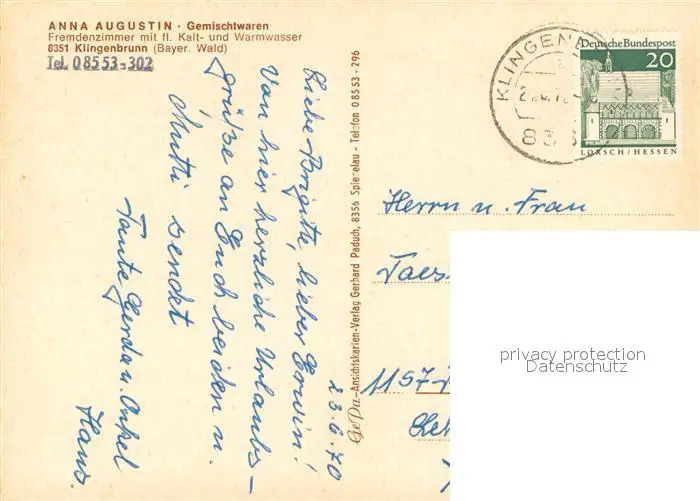 ANNA AUGUSTIN · Gemischtwaren
Fremdenzimmer mit fl. Kalt- und Warmwasser
8351 Klingenbrunn (Bayer. Wald)
Tel. 08553-302
Ansichtskarten-Verlag Gerhard Paduch, 8356 Spiegelau - Telefon 08553-296
23.6.70
Liebe Brigitte, lieber Erwin!
Von hier herzliche Urlaubs-
grüße an Euch beiden u.
Mutti sendet
Tante Gerda u. Onkel
Hans.
KLINGEN
Deutsche Bundespost
20
LORSCH/HESSEN
Herrn u. Frau
Taes
1157
privacy protection
Datenschutz